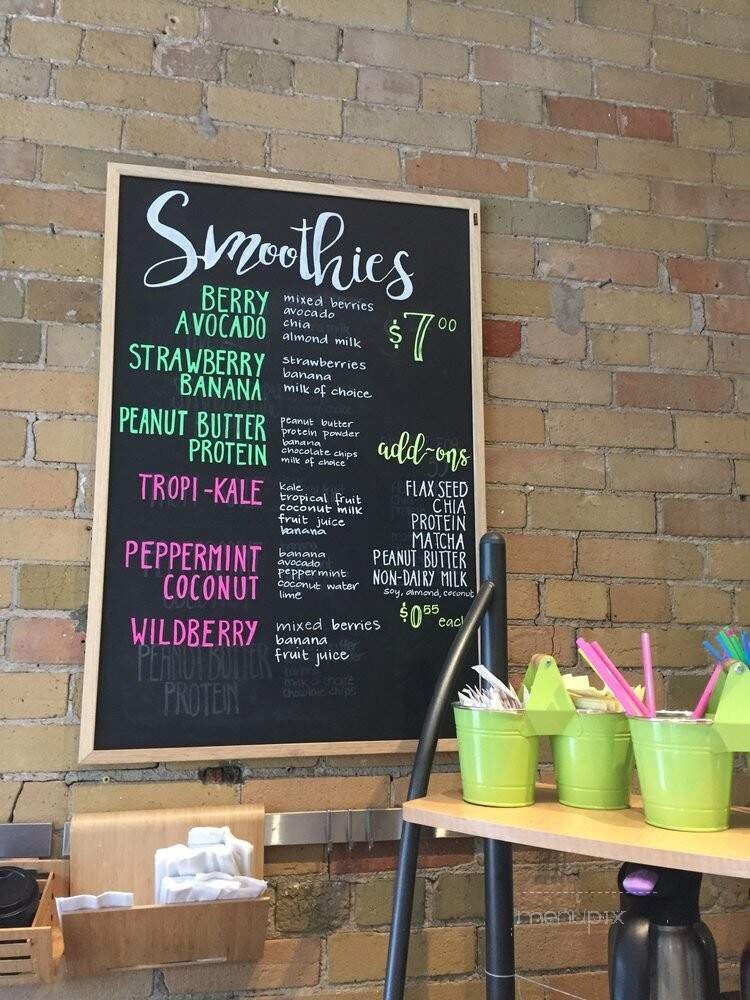 Smoothies
BERRY
AVOCADO
mixed berries
avocado
chia
almond milk
$7.00
STRAWBERRY
BANANA
strawberries
banana
milk of choice
PEANUT BUTTER
PROTEIN
peanut butter
protein powder
banana
chocolate chips
milk of choice
TROPI-KALE
kale
tropical fruit
coconut milk
fruit juice
banana
PEPPERMINT
COCONUT
banana
avocado
peppermint
coconut water
lime
WILDBERRY
mixed berries
banana
fruit juice
PEANUT BUTTER
PROTEIN
milk of choice
chocolate chips
add-ons
FLAX SEED
CHIA
PROTEIN
MATCHA
PEANUT BUTTER
NON-DAIRY MILK
soy, almond, coconut
$0.55 each
menupix